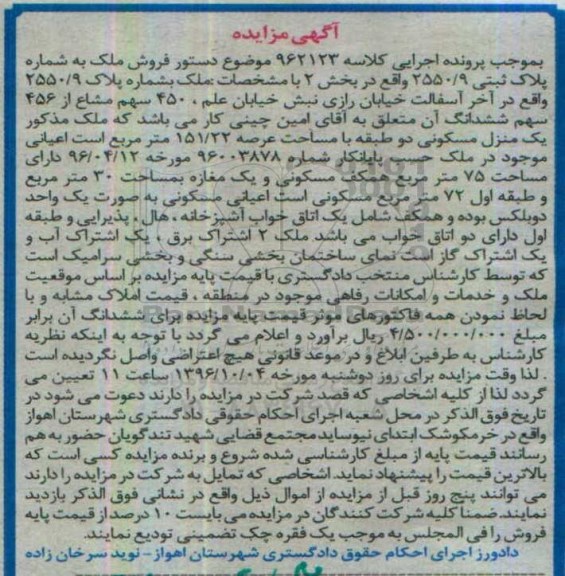 آگهی مزایده
بموجب پرونده اجرایی کلاسه ۹۶۲۱۲۳ موضوع دستور فروش ملک به شماره
پلاک ثبتی ۲۵۵۰/۹ واقع در بخش ۲ با مشخصات :ملک بشماره پلاک ۲۵۵۰/۹
واقع در آخر آسفالت خیابان رازی نبش خیابان علم ، ۴۵۰ سهم مشاع از ۴۵۶
سهم ششدانگ آن متعلق به آقای امین چینی کار می باشد که ملک مذکور
یک منزل مسکونی دو طبقه با مساحت عرصه ۱۵۱/۲۲ متر مربع است اعیانی
موجود در ملک حسب پایانکار شماره ۹۶۰۰۳۸۷۸ مورخه ۹۶/۰۴/۱۲ دارای
مساحت ۷۵ متر مربع همکف مسکونی و یک مغازه بمساحت ۳۰ متر مربع
و طبقه اول ۷۲ متر مربع مسکونی است اعیانی مسکونی به صورت یک واحد
دوبلکس بوده و همکف شامل یک اتاق خواب آشپزخانه ، هال ، پذیرایی و طبقه
اول دارای دو اتاق خواب می باشد ملک ۲ اشتراک برق ، یک اشتراک آب و
یک اشتراک گاز است نمای ساختمان بخشی سنگی و بخشی سرامیک است
که توسط کارشناس منتخب دادگستری با قیمت پایه مزایده بر اساس موقعیت
ملک و خدمات و امکانات رفاهی موجود در منطقه ، قیمت املاک مشابه و با
لحاظ نمودن همه فاکتورهای موثر قیمت پایه مزایده برای ششدانگ آن برابر
مبلغ ۴/۵۰۰/۰۰۰/۰۰۰ ریال برآورد و اعلام می گردد با توجه به اینکه نظریه
کارشناس به طرفین ابلاغ و در موعد قانونی هیچ اعتراضی واصل نگردیده است
. لذا وقت مزایده برای روز دوشنبه مورخه ۱۳۹۶/۱۰/۰۴ ساعت ۱۱ تعیین می
گردد لذا از کلیه اشخاصی که قصد شرکت در مزایده را دارند دعوت می شود در
تاریخ فوق الذکر در محل شعبه اجرای احکام حقوقی دادگستری شهرستان اهواز
واقع در خرمکوشک ابتدای نیوساید مجتمع قضایی شهید تندگویان حضور به هم
رسانند قیمت پایه از مبلغ کارشناسی شده شروع و برنده مزایده کسی است که
بالاترین قیمت را پیشنهاد نماید اشخاصی که تمایل به شرکت در مزایده را دارند
می توانند پنج روز قبل از مزایده از اموال ذیل واقع در نشانی فوق الذکر بازدید
نمایند ضمنا کلیه شرکت کنندگان در مزایده می بایست ۱۰ درصد از قیمت پایه
فروش را فی المجلس به موجب یک فقره چک تضمینی تودیع نمایند.
دادورز اجرای احکام حقوق دادگستری شهرستان اهواز - نوید سرخان زاده